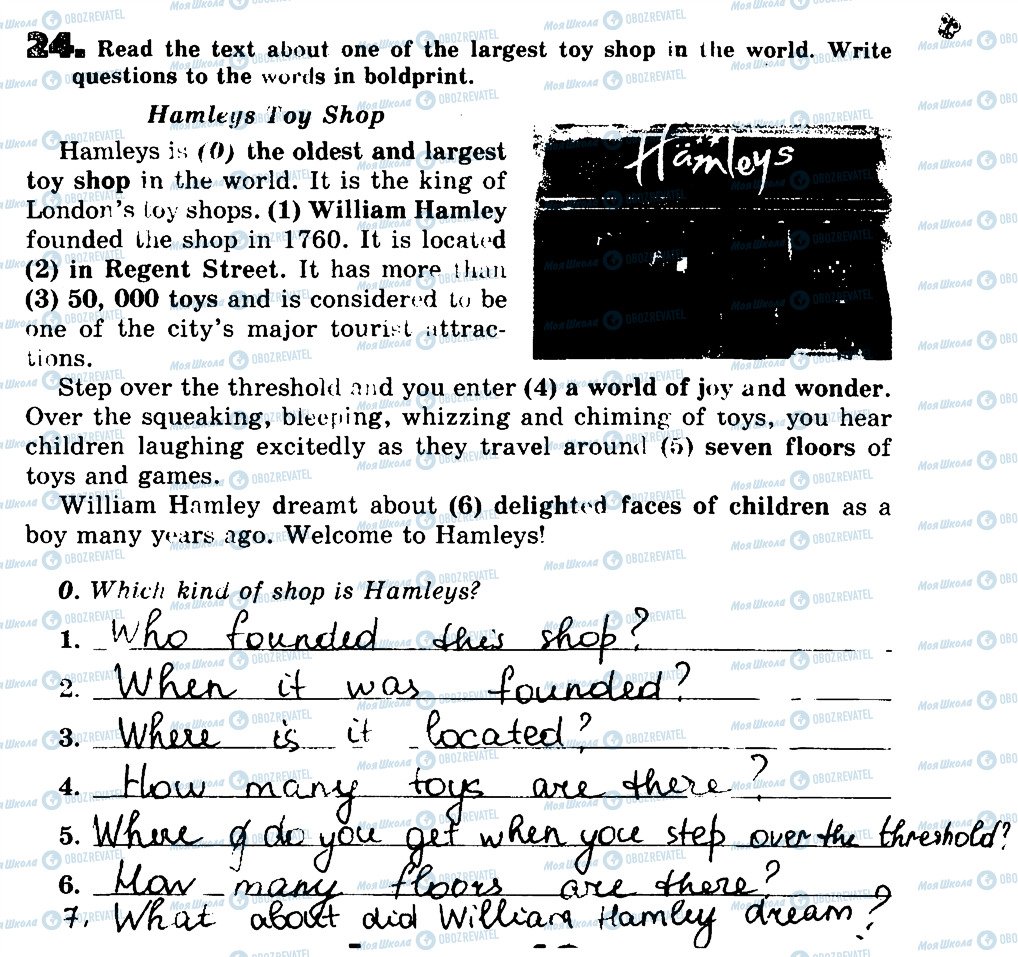 24. Read the text about one of the largest toy shop in the world. Write
questions to the words in boldprint.
Hamleys Toy Shop
Hamleys is (0) the oldest and largest
toy shop in the world. It is the king of
London's toy shops. (1) William Hamley
founded the shop in 1760. It is located
(2) in Regent Street. It has more than
(3) 50, 000 toys and is considered to be
one of the city's major tourist attrac-
tions.
Hamleys
Step over the threshold and you enter (4) a world of joy and wonder.
Over the squeaking, bleeping, whizzing and chiming of toys, you hear
children laughing excitedly as they travel around (5) seven floors of
toys and games.
William Hamley dreamt about (6) delighted faces of children as a
boy many years ago. Welcome to Hamleys!
0. Which kind of shop is Hamleys?
1. Who founded this shop?
2. When it was founded?
3. Where is it located?
4. How many toys are there?
5. Where do you get when you step over the threshold?
6. How many floors are there?
7. What about did William Hamley dream?
МояШкола OBOZREVATEL